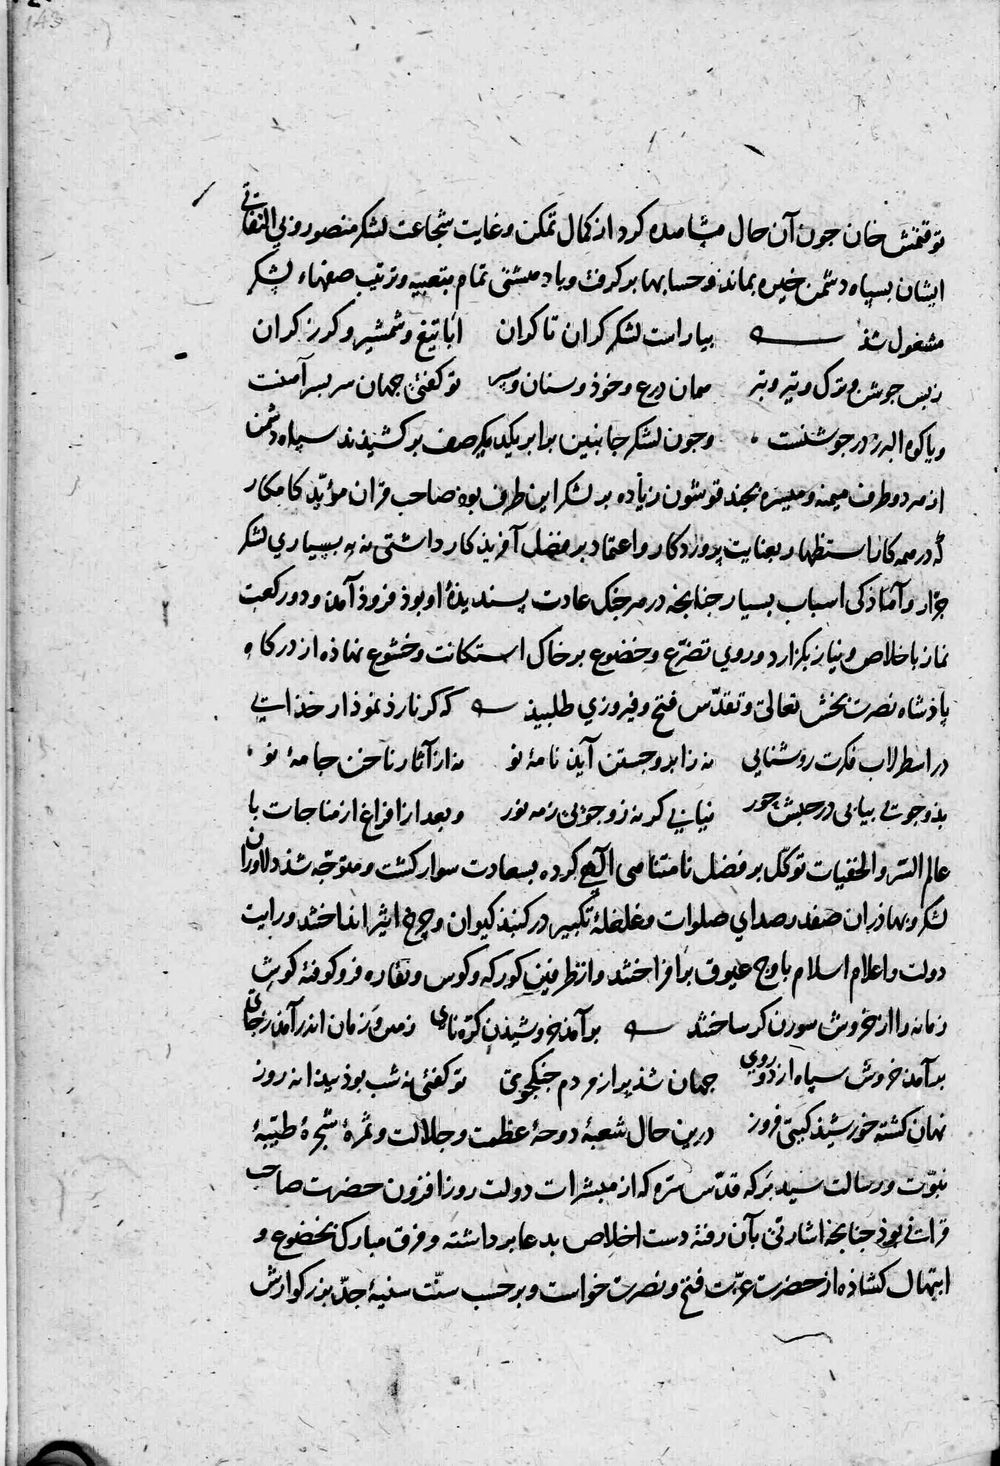 توقتمش خان جون آن حال مشاهده كرد از كمال تمكن و غايت شجاعت لشكر منصور و بي التفاتي
ايشان بسپاه دشمن خيره بماند و حسابها بر كرفت و با دهشتي تمام بتعبيه و ترتيب صفهاء لشكر
مشغول شذ بياراست لشكر كران تا كران ابا تيغ و شمشير و كرز كران
ز بس جوشن و ترك و تير و تبر همان درع و خوذ و سنان و سپر تو كفتي جهان سر بسر آهنست
و يا كوه البرز در جوشنست و جون لشكر جانبين برابر يكديكر صف بر كشيذند سپاه دشمن
از هر دو طرف ميمنه و ميسره بجند قوشون زياده بر لشكر اين طرف بوذ صاحب قران مؤيد كامكار
كه در همه كار استظهار بعنايت پروردكار و اعتماد بر فضل آفريذكار داشتي نه به بسياري لشكر
جرّار و آماذكي اسباب بسيار جنانجه در هر جنك عادت پسنديذهٔ او بوذ فروذ آمد و دو ركعت
نماز باخلاص و نياز بكزارد و روي تضرّع و خضوع بر خاك استكانت و خشوع نهاذه از دركاه
پاذشاه نصرت بخش تعالى و تقدّس فتح و فيروزي طلبيذ كه كر نارذ نموذار خذايي
در اسطرلاب فكرت روشنايي نه ز ابرو جستن آيذ نامهٔ نو نه از آثار ناخن جامهٔ نو
بذو جوئي بيابي در حبش حور نيابي كر نه زو جوئي ز مه نور و بعد از فراغ از مناجات با
عالم السّر و الخفيات توكّل بر فضل نامتناهي الهي كرده بسعادت سوار كشت و متوجّه شذ دلاوران
لشكر و بهاذران صفدر صداي صلوات و غلغلهٔ تكبير در كنبذ كيوان و جرخ اثير انداختند و رايت
دولت و اعلام اسلام باوج عيوق بر افراختند و از طرفين كوركه و كوس و نقاره فرو كوفته كوش
زمانه را از خروش سورن كر ساختند بر آمذ خروشيذن كرّه ناي زمين و زمان اندر آمد ز جاي
بر آمذ خروش سپاه از دو روي جهان شذ پر از مردم جنكجوي تو كفتي نه شب بوذ پيدا نه روز
نهان كشته خورشيذ كيتي فروز درين حال شعبهٔ دوحهٔ عظمت و جلالت و ثمرهٔ شجرهٔ طيّبهٔ
نبوّت و رسالت سيد بركه قدّس سرّه كه از مبشرات دولت روز افزون حضرت صاحب
قراني بوذ جنانجه اشارتي بآن رفته دست اخلاص بدعا برداشته و فرق مبارك بخضوع و
ابتهال كشاذه از حضرت عزّت فتح و نصرت خواست و بر حسب سنّت سنيهٔ جدّ بزركوارش